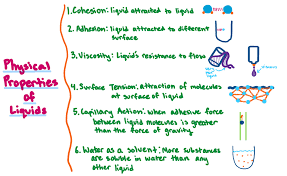 Physical
Properties
of
Liquids
1. Cohesion: liquid attracted to liquid
2. Adhesion: liquid attracted to different
surface
3. Viscosity: Liquid's resistance to flow
4. Surface Tension: attraction of molecules
at surface of liquid
5. Capillary Action: when adhesive force
between liquid molecules is greater
than the force of gravity
6. Water as a solvent: More substances
are soluble in water than any
other liquid